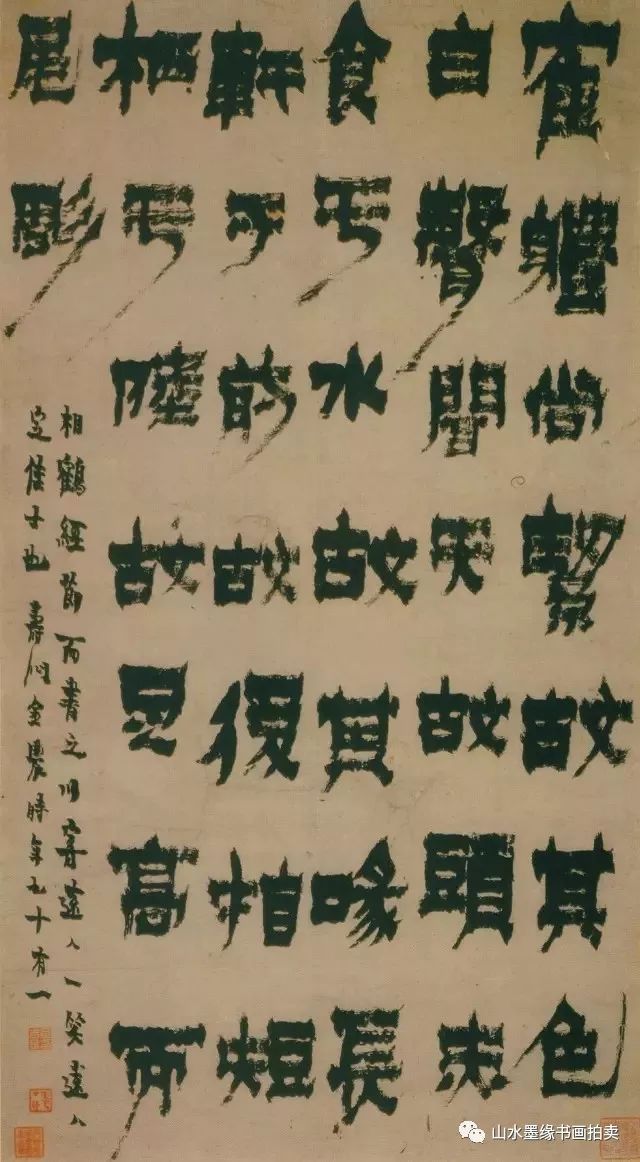 寉體尚絜故其色
白聲聞天故頭朱
食亐水故其喙長
軒于前故後指短
栖亐陸故足高而
尾彫
相鶴經節而書之以寄遠人一笑遠人
定佳士也 壽門金農時年七十有一
山水墨缘书画拍卖